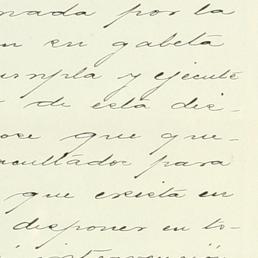 nada por la
en su gabeta
umpla y ejecute
de esta dis-
ose que que-
acultados para
que exista en
disponer en to-
intervención